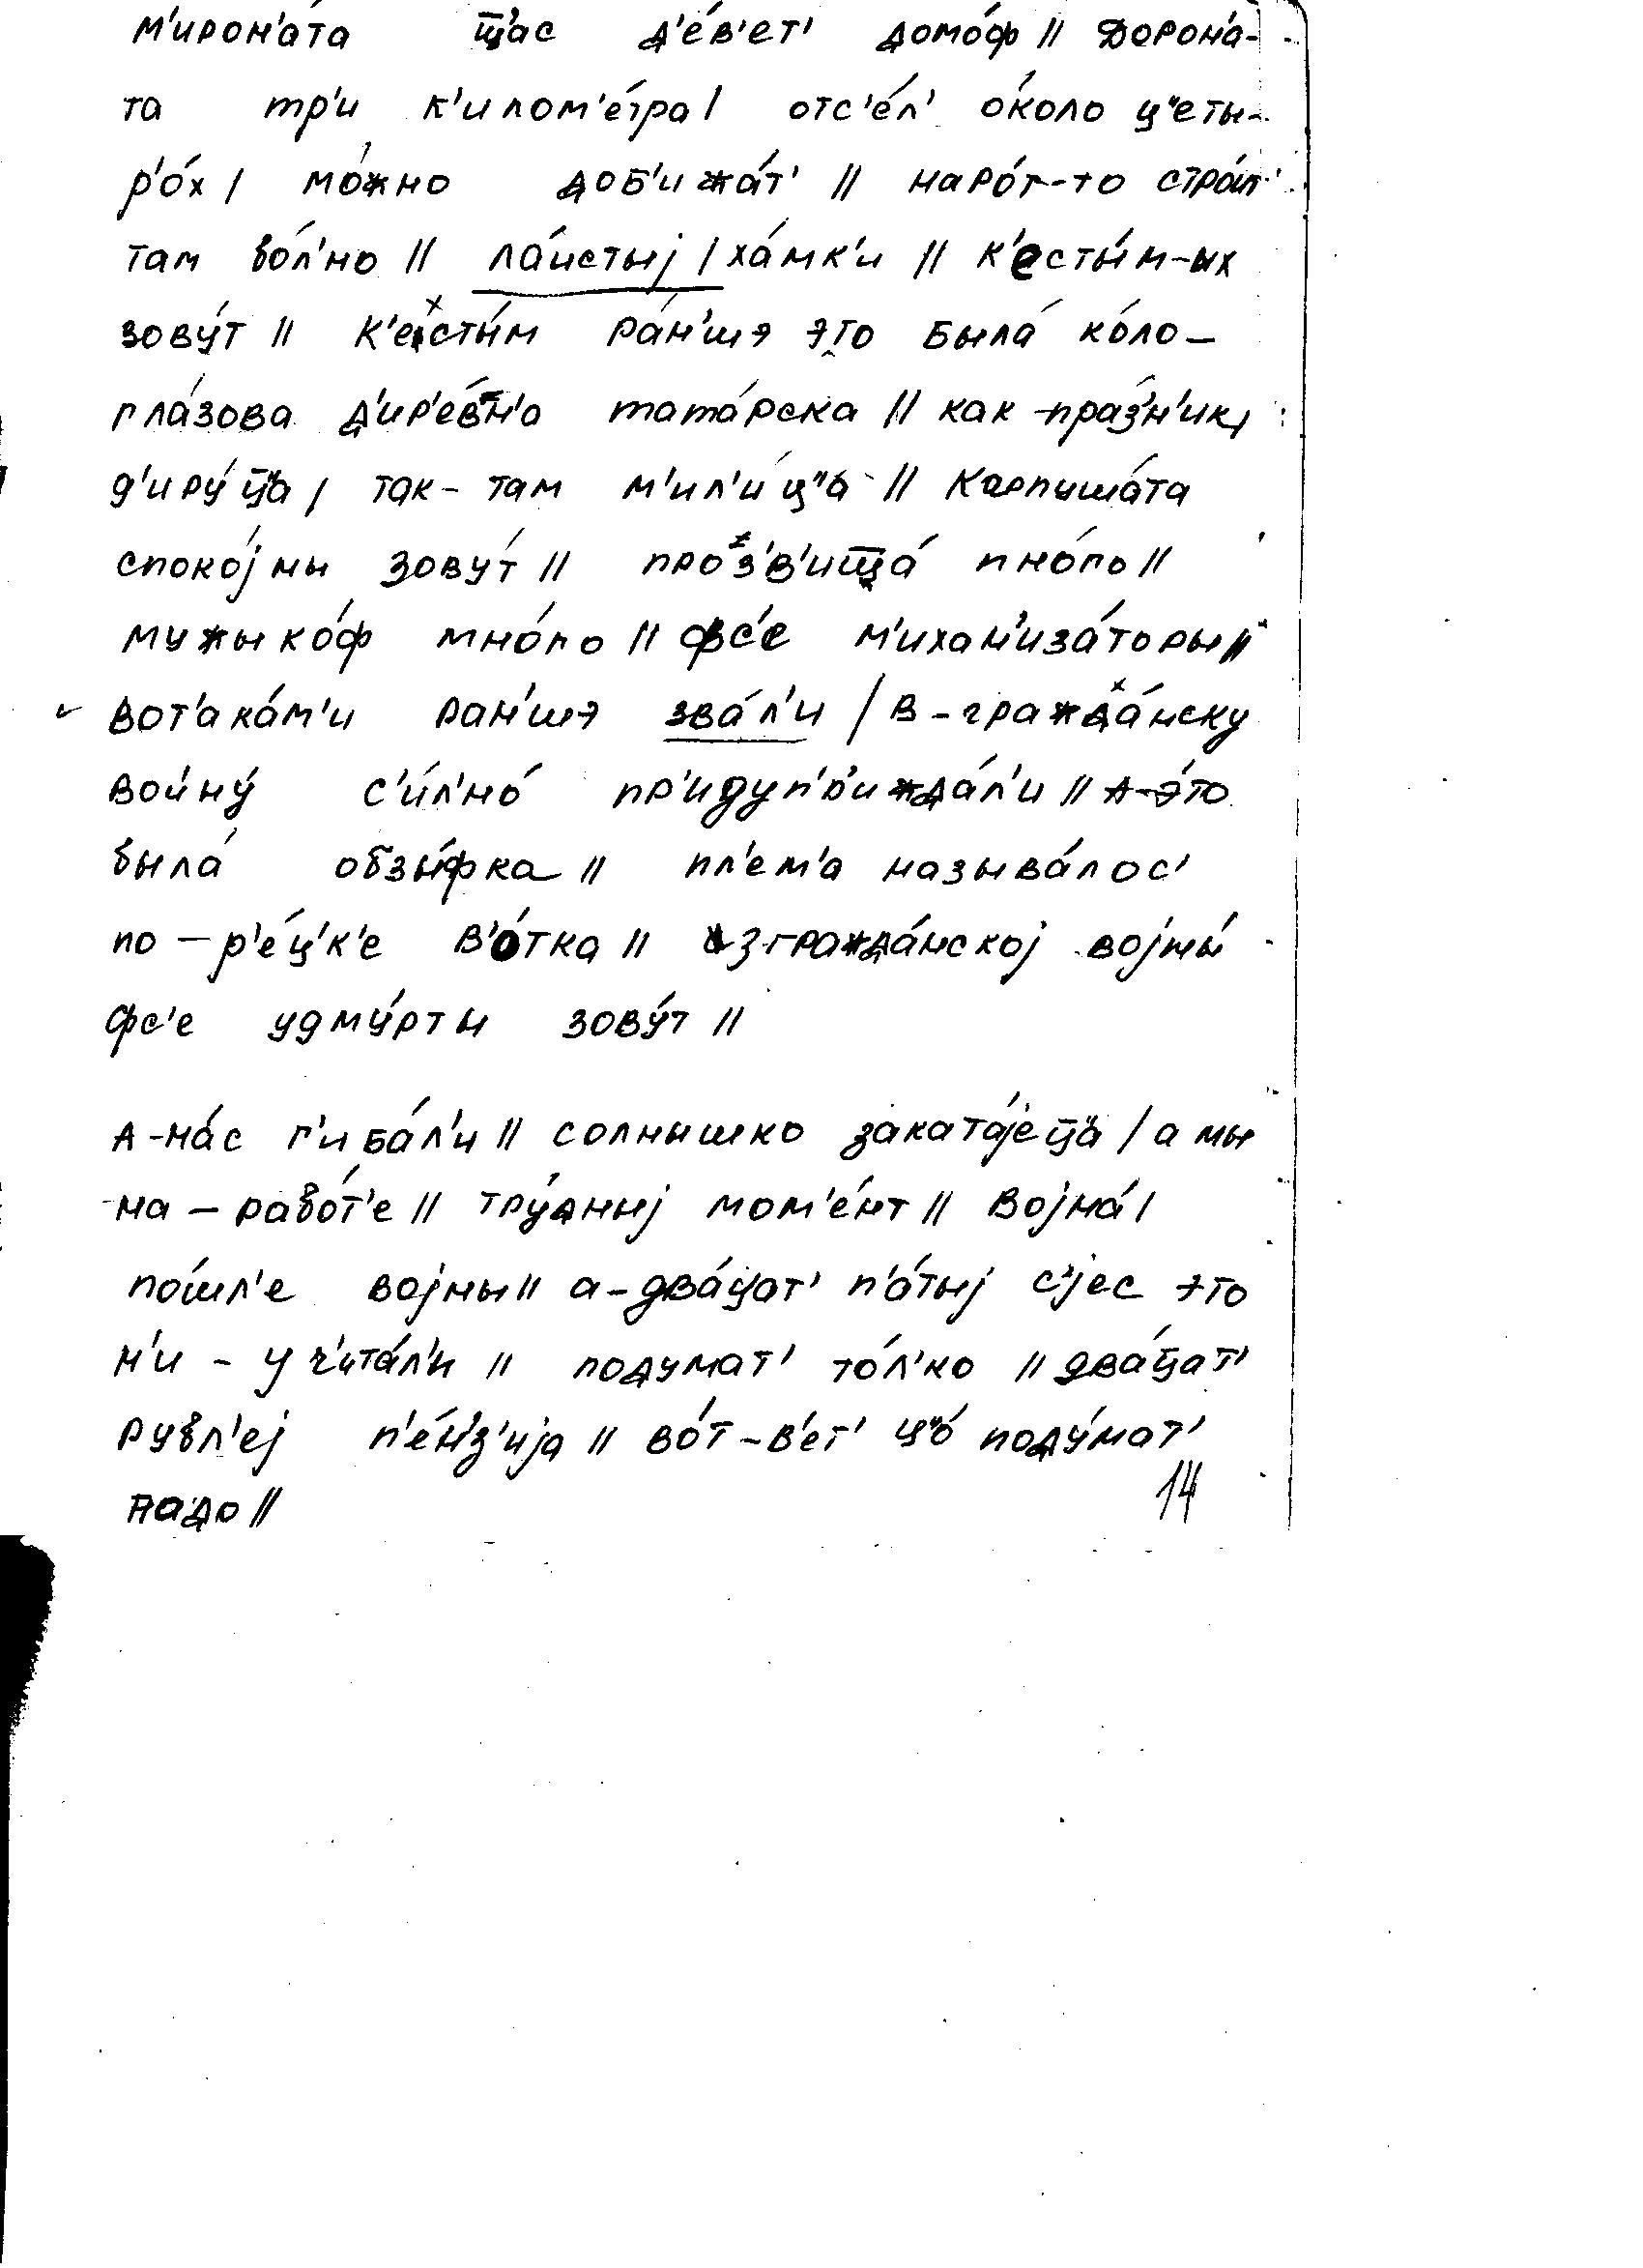 м'ирон'а́та щ'ас д'е́в'ет' домо́ф // Дорон'а́-
та тр'и к'илом'е́тра / отс'е́л' о́коло ц"еты-
р'о́х / мо́жно доб'ижа́т' // наро́т-то стра́п'
там во́л'но // ла́истыj / ха́мк'и // к'есты́м-ых
зову́т // к'есты́м ра́н'шэ э́то была́ ко́ло-
гла́зова д'ир'е́вн'а тата́рска // как-пра́з'н'ик /
д'иру́ц"а / так-там м'ил'и́ц"а // Карпуша́та
споко́jны зову́т // проз'в'ища́ мно́го //
мужыко́ф мно́го // фс'е м'ихан'иза́торы //
вот'ака́м'и ран'шэ зва́л'и / в-гражда́нску
войну́ с'и́л'но́ пр'идуп'р'ижда́л'и // а-э́то
была́ обзы́фка // пл'ем'а называ́лос'
по-р'е́ц'к'е в'о́тка // из-гражда́нскоj воjны́
фс'е удму́рты зову́т //
А-на́с г'иба́л'и // солнышко заката́jец"а / а мы
на-рабо́т'е // тру́дныj мом'е́нт // воjна́ /
по́шл'е воjны // а-два́цат' п'а́тыj с'jес э́то
н'и-уч'ита́л'и // подумат' то́л'ко // два́цат'
рубл'еj п'е́н'з'иjа // во́т-в'ет' ц"о́ поду́мат'
надо //
14